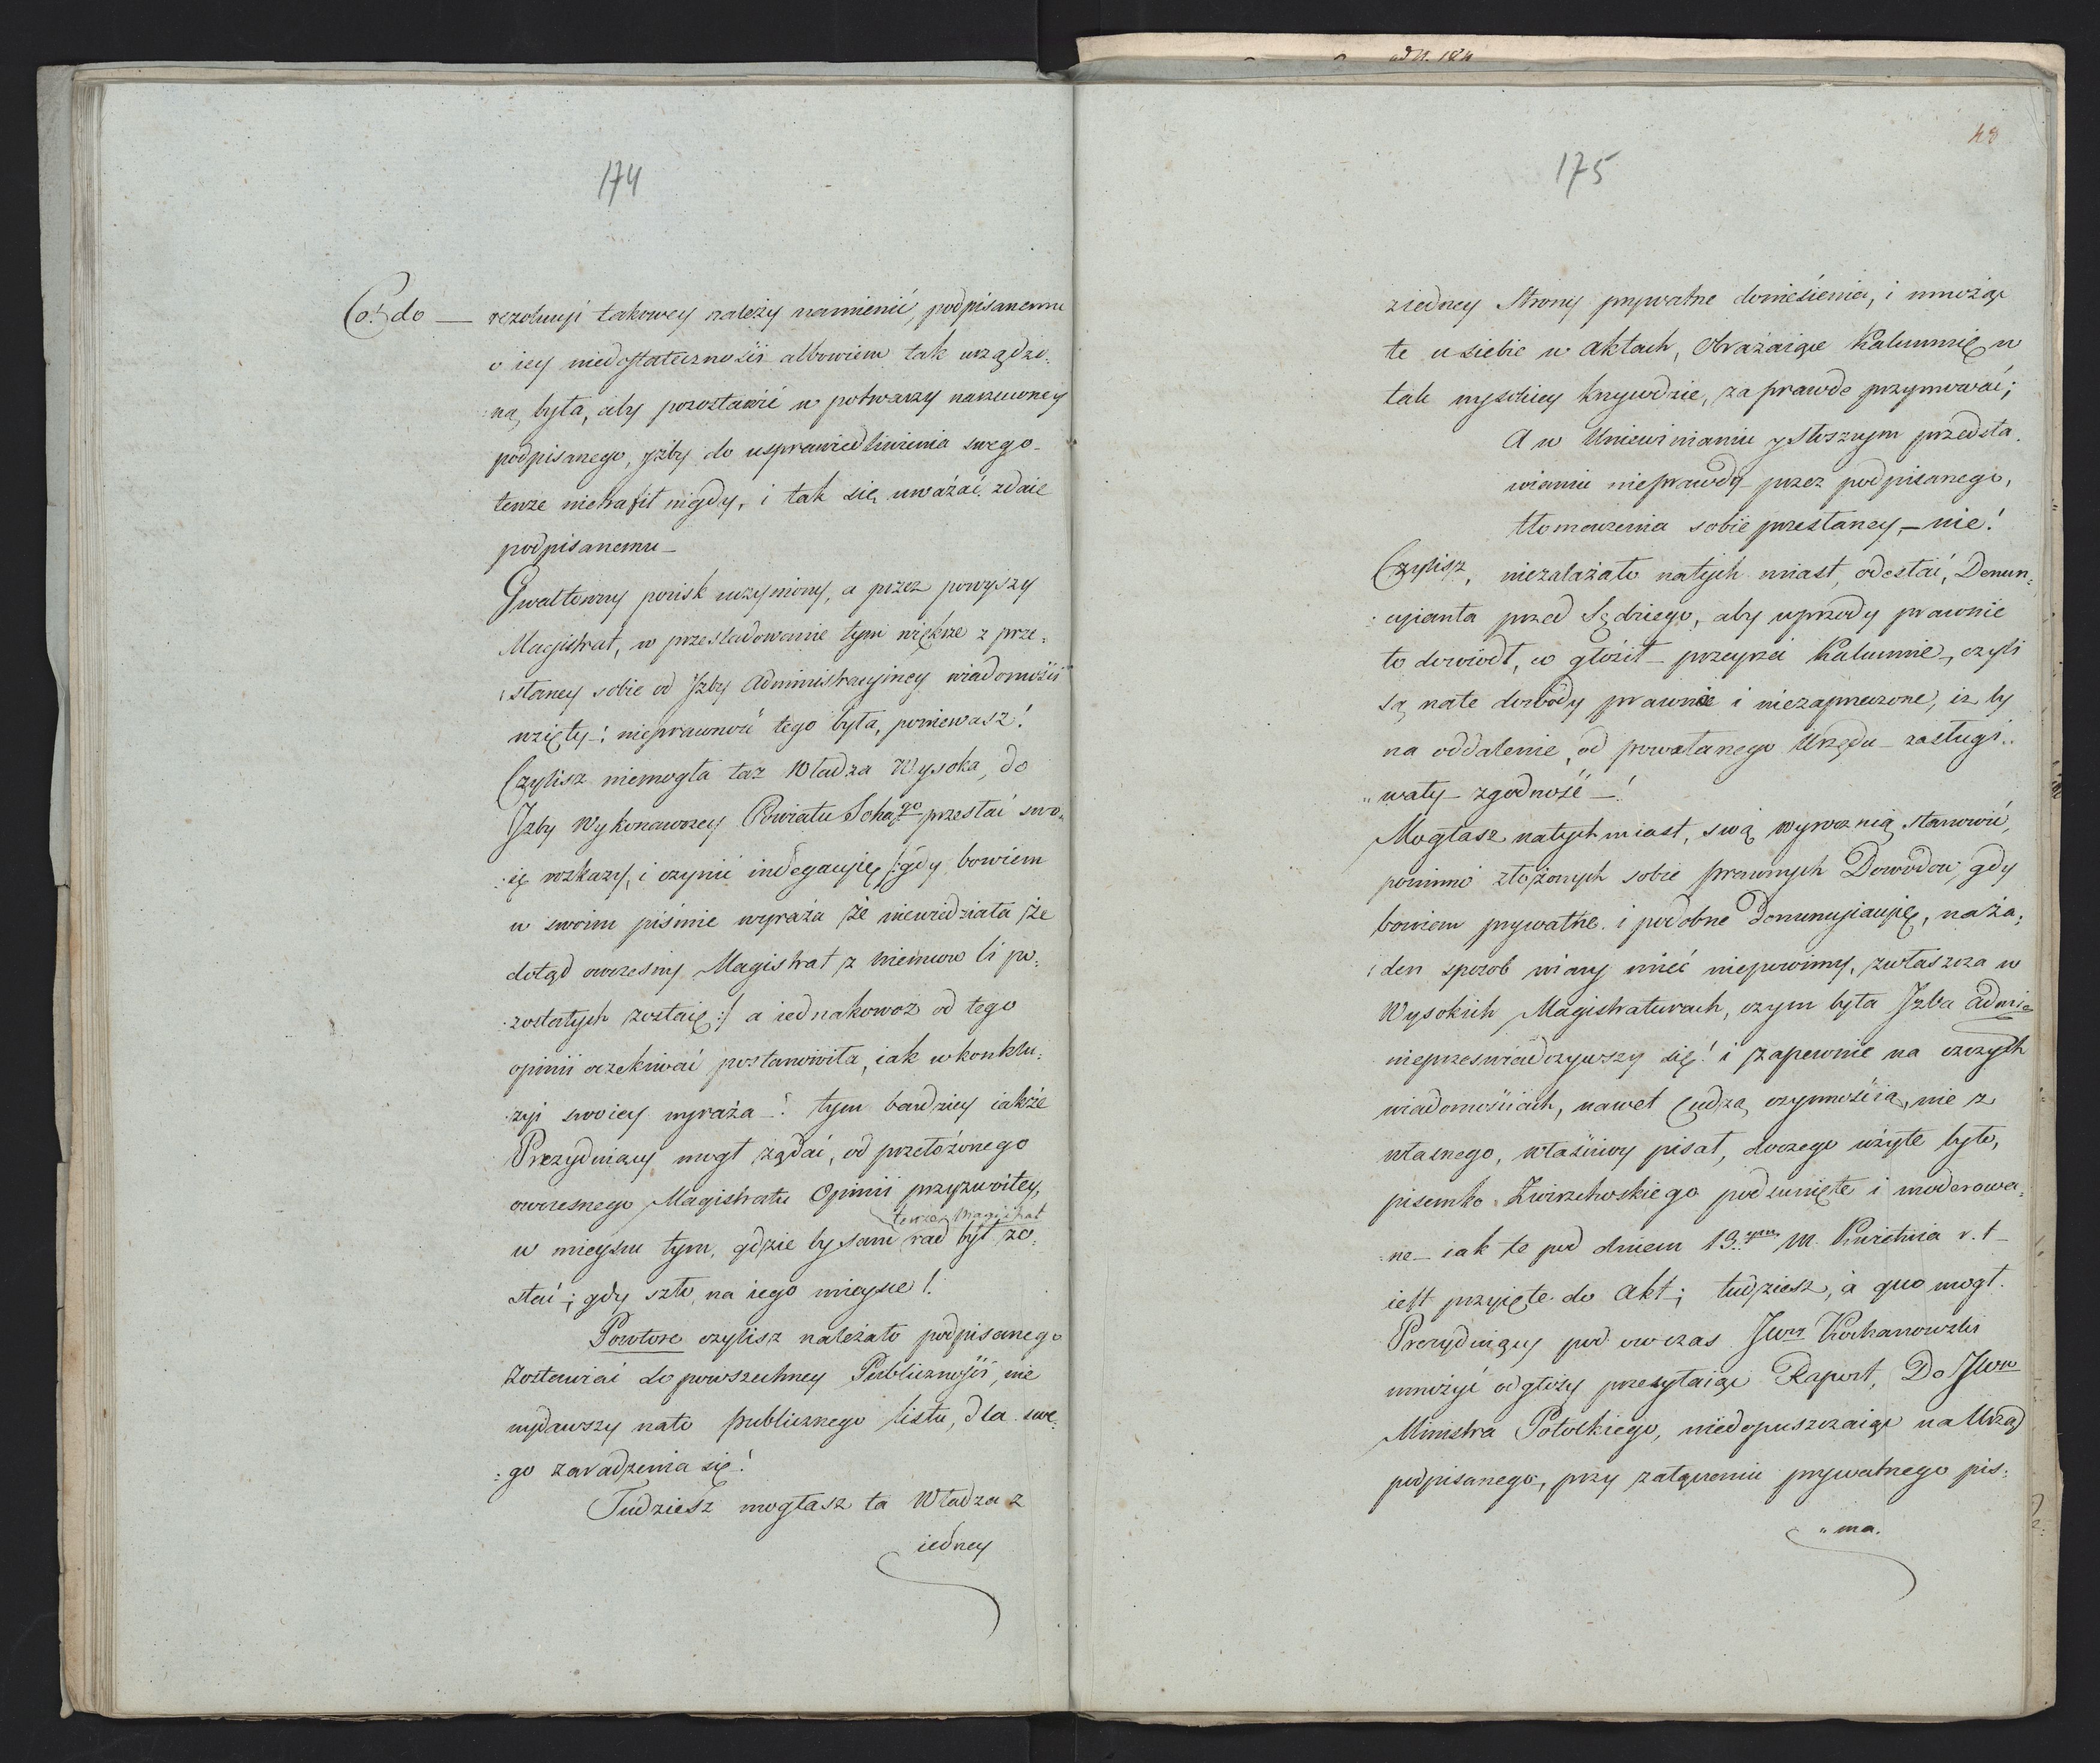 174
Co: do — rezolucyi takowey należy namienić, podpisanemu
o iey niedostateczności albowiem tak urządzo-
:ną była, aby pozostawić w potwarzy narzuconey
podpisanego, yżby do usprawiedliwienia swego
tenze nietrafił nigdy, i tak się uważać zdaie
podpisanemu —
Gwałtowny pocisk uczyniony, a przez powyższy
Magistrat, w prześladowanie tym większe z prze:
:słaney sobie od Izby Administracyiney wiadomości
wzięty —: nieprawność tego była, poniewasz!
Czylisz niemogła taż Władza Wysoka, do
Izby Wykonawczey Powiatu Socha:go przesłać swo„
:ię rozkazy, i czynić indegacyię /: gdy bowiem
w swoim piśmie wyraża że niewiedziała że
dotąd owczesny Magistrat z Niemcow li po:
:zostałych zostaię :/ a iednakowoż od tego
opinii oczekiwać postanowiła, iak w konklu:
:zyi swoiey wyraża —! tym bardziey iakże
Prezyduiący mogł żądać, od przełożonego
owczesnego Magistratu Opinii przyzwoitey,
tenże Magistrat
w mieyscu tym, gdzie by sam rad był zo:
stać —; gdy szło, na iego mieysce!
Powtore czylisz należało podpisanego
Zostawiać do powszechney Publiczności, nie
wydawszy nato publicznego listu, dla swe:
:go zaradzenia się!
Tudziesz mogłasz ta Władza z
iedney
ad N. 184
48
175
ziedney Strony prywatne doniesienia, i mnożąc
te u siebie w Aktach, Obrażaiące Kalumnię w
tak wysokiey krzywdzie, za prawdę przyimować;
A w Uniewinianiu y słusznym przedsta.
wianiu nieprawdy przez podpisanego,
tłomaczenia sobie przesłaney, — nie!
Czylisz, niezależało natych miast, odesłać, Denun:
:cyianta przed Sędziego, aby wprzody prawnie
to dowiodł, co głosił — przeyrzeć Kalumnie —, czyli
są nate dowody prawne i niezaprzeczone, iż by
na oddalenie, od powołanego Urzędu — zasługi„
„wały — zgodność —!
Mogłasz natychmiast, swą wyrocznią stanowić,
pominno złożonych sobie prawnych Dowodow, gdy
bowiem prywatne i podobne Denuncyiacyie, na ża:
:den sposob wiary mieć niepowinny, zwłaszcza w
Wysokich Magistraturach, czym była Izba Admi:
nieprzeswiadczywszy się! i zapewnie na czczych
wiadomościach, nawet Cudzą czynnością, nie z
własnego, właściwy pisał, do czego użyte było,
pisemko Zwirzchowskiego podsunięte i moderowa:
:ne — iak te pod dniem 13. ym M. Kwietnia r. t —
iest przyięte do Akt; tudziesz, à quo mogł.
Prezyduiący pod owczas JWny Kochanowski
mnożyć odgłosy przesyłaiąc Raport, Do JWo
Ministra Potockiego, niedopuszczaiąc na Urząd
podpisanego, przy załączeniu prywatnego pis:
„ma.